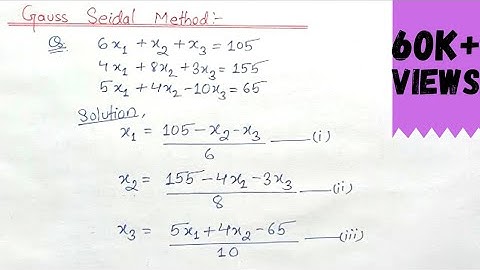 Gauss Seidal Method:-
Q. 6x₁ + x₂ + x₃ = 105
4x₁ + 8x₂ + 3x₃ = 155
5x₁ + 4x₂ - 10x₃ = 65
Solution,
x₁ = (105 - x₂ - x₃)/6 —(i)
x₂ = (155 - 4x₁ - 3x₃)/8 —(ii)
x₃ = (5x₁ + 4x₂ - 65)/10 —(iii)
60K+
VIEWS